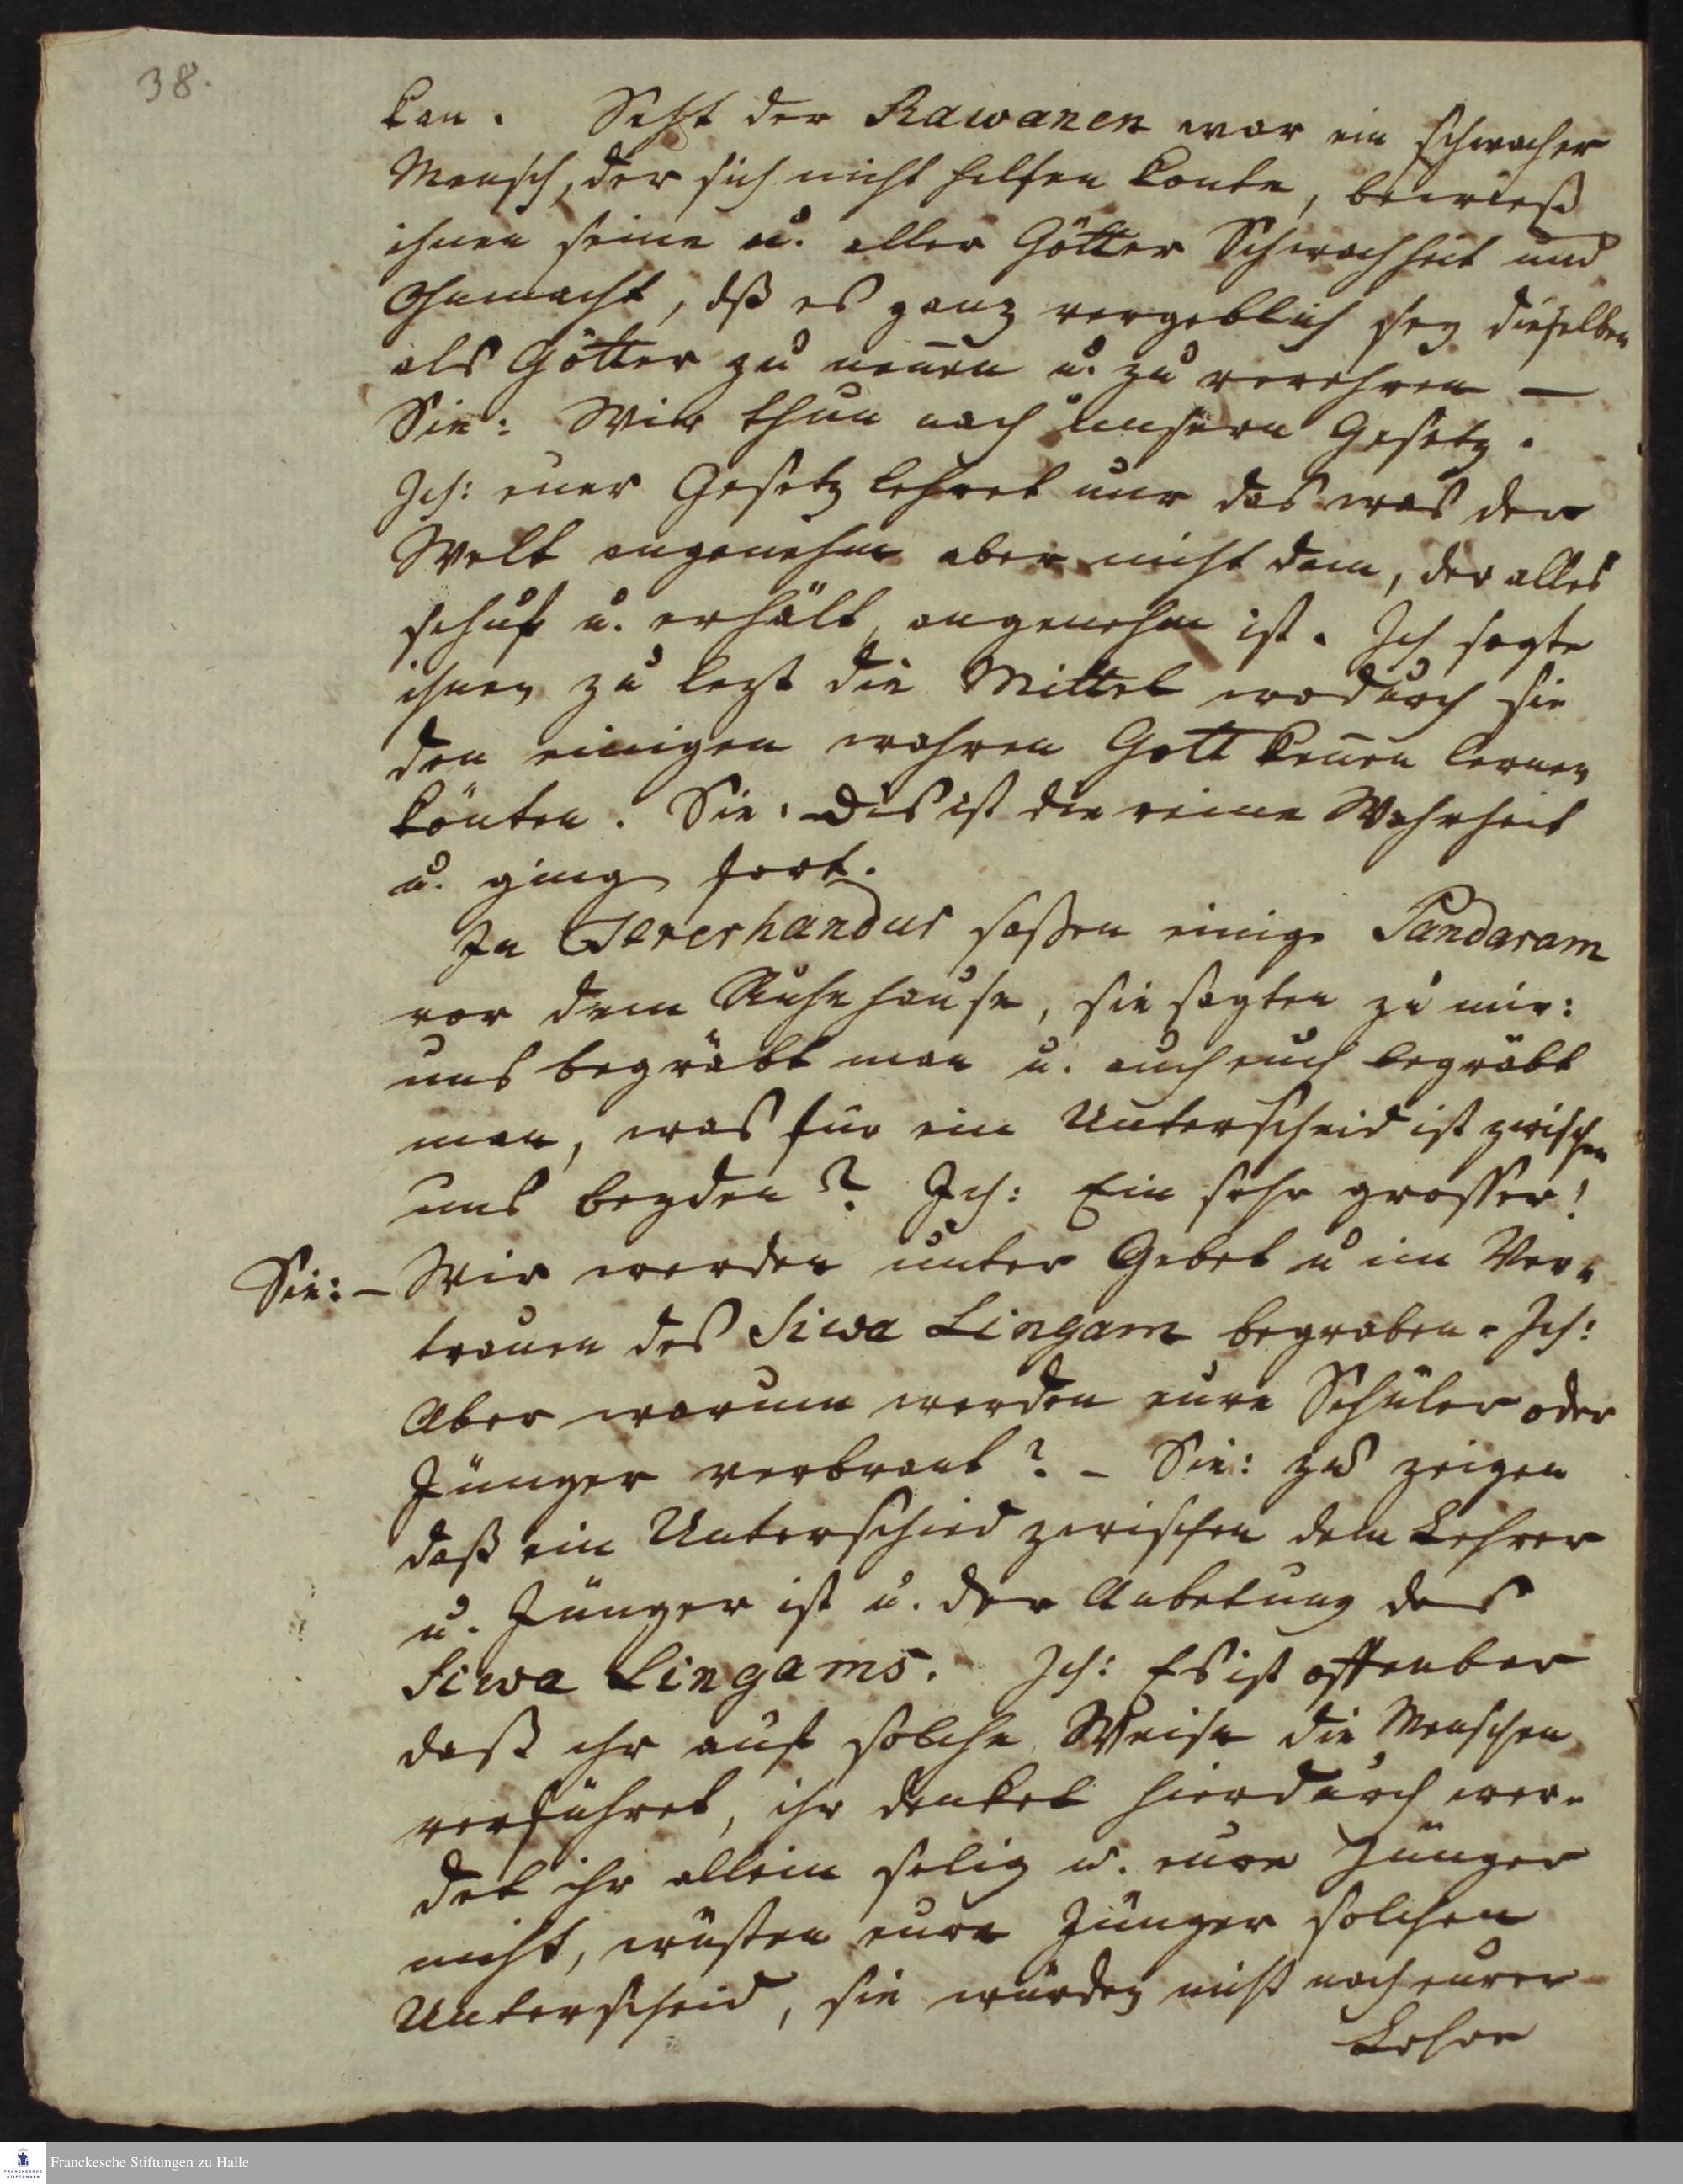 38.
kan. Seht der Rawanen war ein schwacher
Mensch, der sich nicht helfen konte, bewieß
ihnen seine u. aller Götter Schwachheit und
Ohnmacht, dß es ganz vergeblich sey dieselben
als Götter zu nen̄en u. zu verehren —
Sie: Wir thun nach unsern Gesetz.
Ich: euer Gesetz lehret nur das was der
Welt angenehm aber nicht dem, der alles
schuf u. erhält, angenehm ist. Ich sagte
ihnen zu lezt die Mittel wodurch sie
den einigen wahren Gott ken̄en lernen
könten. Sie: Dis ist die reine Wahrheit
u. ging fort.
In saßen einige Pandaram
vor dem Ruhehause, sie sagten zu mir:
uns begräbt man u. auch euch begräbt
man, was für ein Unterscheid ist zwischen
uns beyden? Ich: Ein sehr grosser!
Sie: — Wir werden unter Gebet u im Ver-
trauen des Siwa Lingam begraben. Ich:
Aber warum werden eure Schüler oder
Jünger verbrant? — Sie: zu zeigen
daß ein Unterschied zwischen dem Lehrer
u. Jünger ist u. der Anbetung des
Siwa Lingams. Ich: Es ist offenbar
daß ihr auf solche Weise die Menschen
verführet, ihr denket hierdurch wer-
det ihr allein selig u. eure Jünger
nicht, wüsten eure Jünger solchen
Unterscheid, sie würden nicht nach eurer
Lehre
Franckesche Stiftungen zu Halle
FRANCKESCHE
STIFTUNGEN